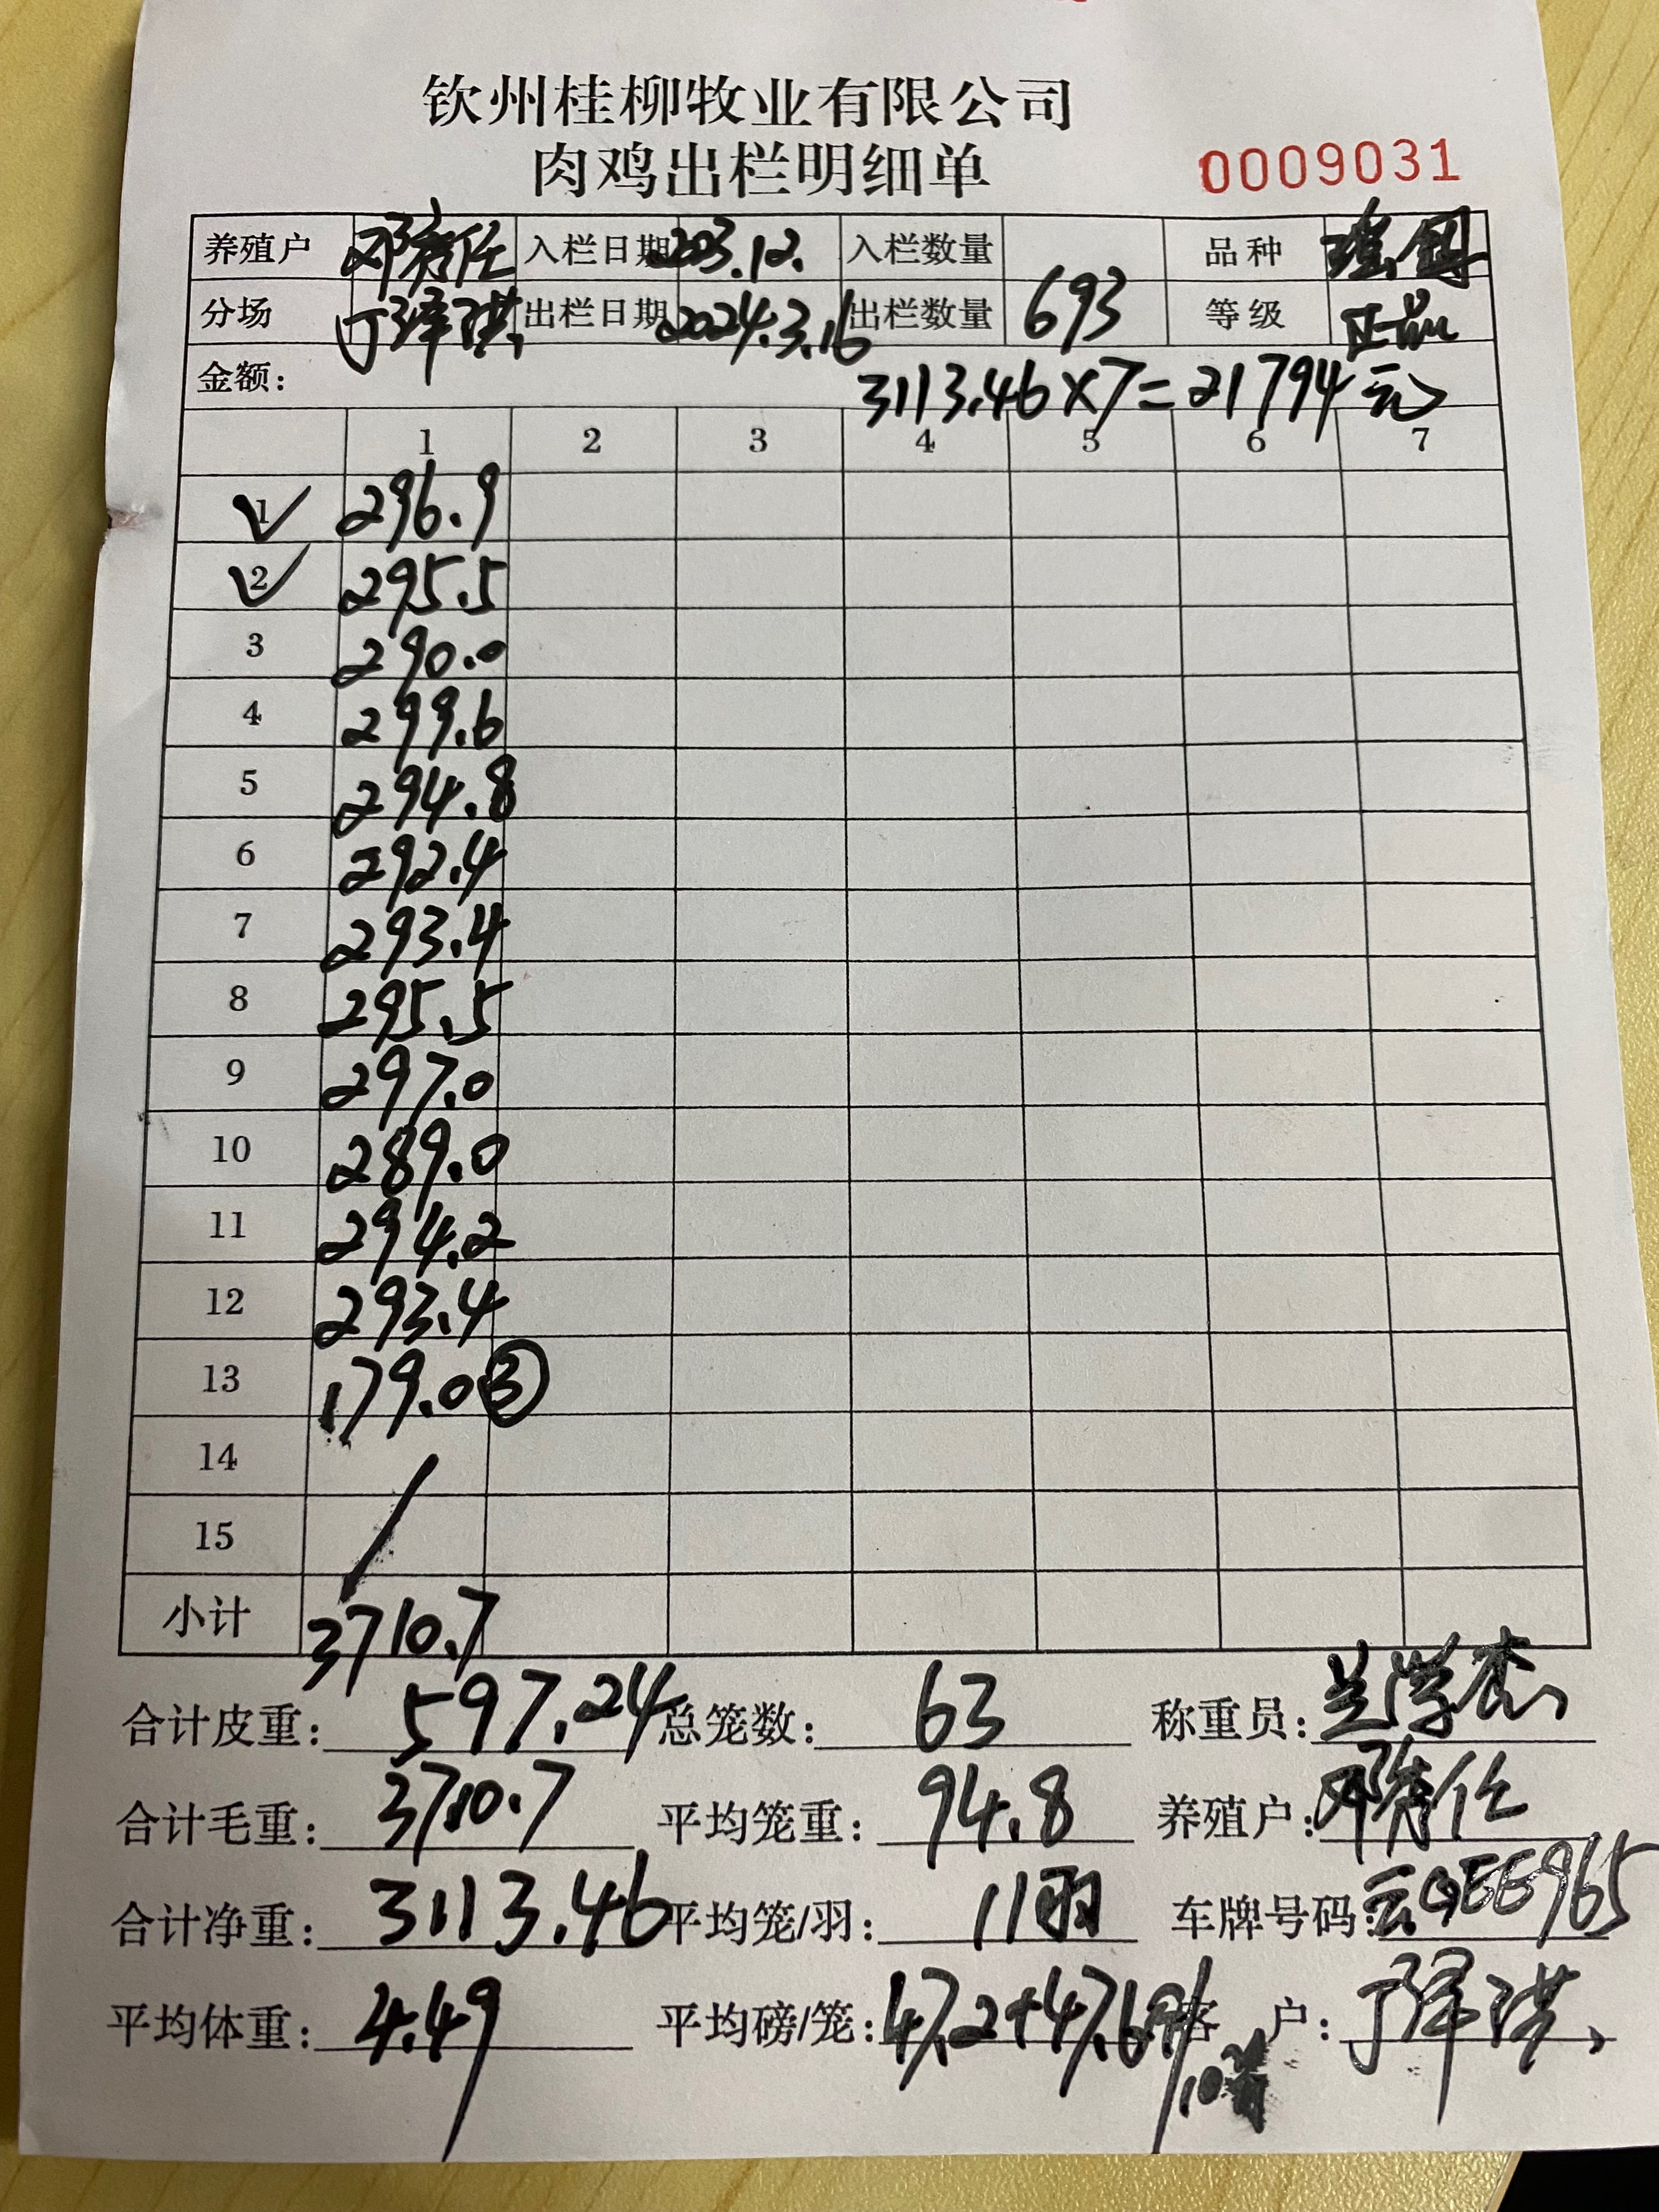 钦州桂柳牧业有限公司
肉鸡出栏明细单
0009031
养殖户 入栏日期 2023.12. 入栏数量 品种
分场 丁泽洪 出栏日期 2024.3.16 出栏数量 693 等级 正品
金额: 3113.46×7=21794元
1 2 3 4 5 6 7
1 296.9
2 295.5
3 290.0
4 299.6
5 294.8
6 292.4
7 293.4
8 295.5
9 297.0
10 289.0
11 294.2
12 293.4
13 179.0 ③
14
15
小计 3710.7
合计皮重: 597.24 总笼数: 63 称重员: 兰学杰
合计毛重: 3710.7 平均笼重: 94.8 养殖户:
合计净重: 3113.46 平均笼/羽: 11羽 车牌号码: 云QEE965
平均体重: 4.49 平均磅/笼: 47.2+47.6 客 户: 丁泽洪